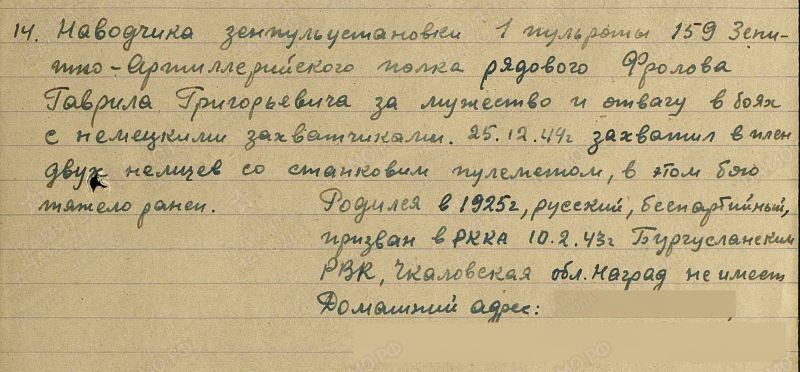 14. Наводчика зенпульустановки 1 пульроты 159 Зени-
тно-Артиллерийского полка рядового Фролова
Гаврила Григорьевича за мужество и отвагу в боях
с немецкими захватчиками. 25.12.44г захватил в плен
двух немцев со станковым пулеметом, в этом бою
тяжело ранен. Родился в 1925г, русский, беспартийный,
призван в РККА 10.2.43г Бургусланским
РВК, Чкаловская обл. Наград не имеет
Домашний адрес: